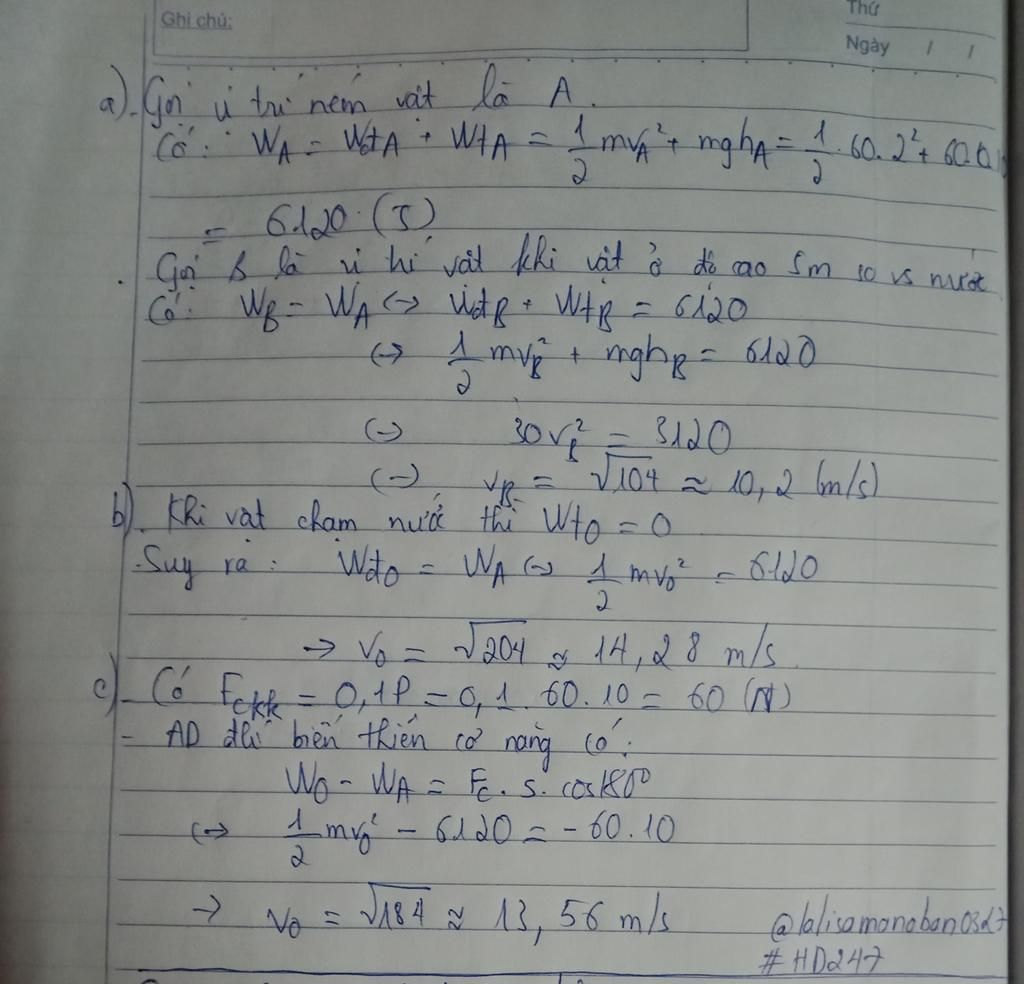 Ghi chú:
Thứ
Ngày / /
a) - Gọi vị trí ném vật là A.
Có: W_A = W_đA + W_tA = 1/2 mv_A² + mgh_A = 1/2 . 60 . 2² + 60.
= 6120 (J)
. Gọi B là vị trí vật khi vật ở độ cao 5m so vs nước
Có: W_B = W_A <-> W_đB + W_tB = 6120
<-> 1/2 mv_B² + mgh_B = 6120
<-> 30v_B² = 3120
<-> v_B = √104 ≈ 10,2 (m/s)
b). Khi vật chạm nước thì W_tO = 0
- Suy ra: W_đO = W_A <-> 1/2 mv_O² = 6120
-> v_O = √204 ≈ 14,28 m/s
c) - Có F_ckk = 0,1P = 0,1 . 60 . 10 = 60 (N)
- AD đlí biến thiên cơ năng có:
W_O - W_A = F_c . s . cos180°
<-> 1/2 mv_O² - 6120 = -60.10
-> v_O = √184 ≈ 13,56 m/s
@lalisamanoban03d7
#HD247